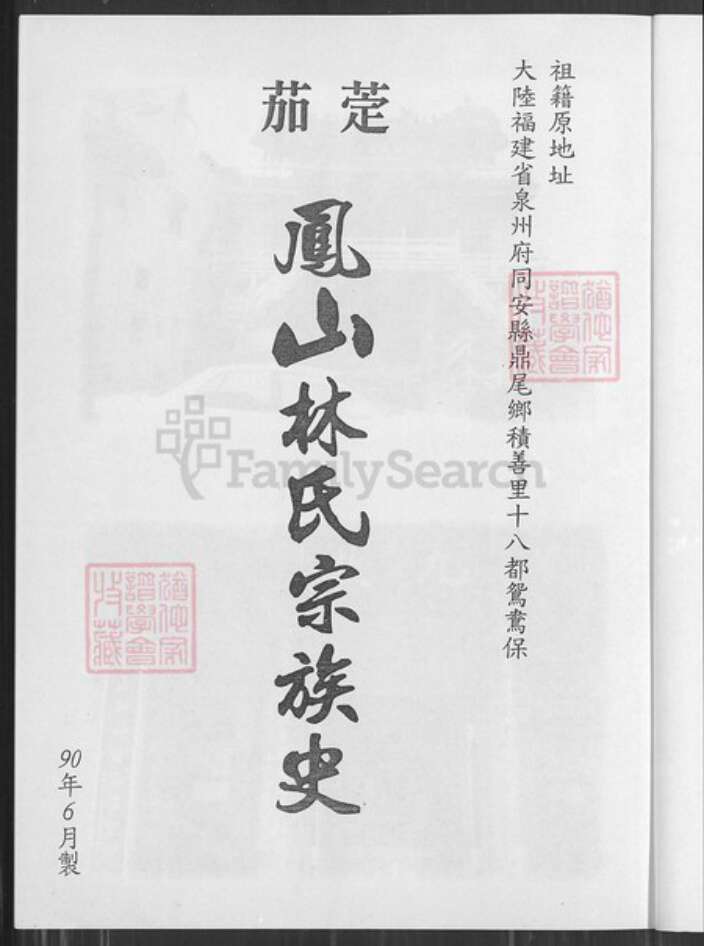 祖籍原地址
大陸福建省泉州府同安縣鼎尾鄉積善里十八都鴛鴦保
茄萣
鳳山林氏宗族史
90年6月製
FamilySearch